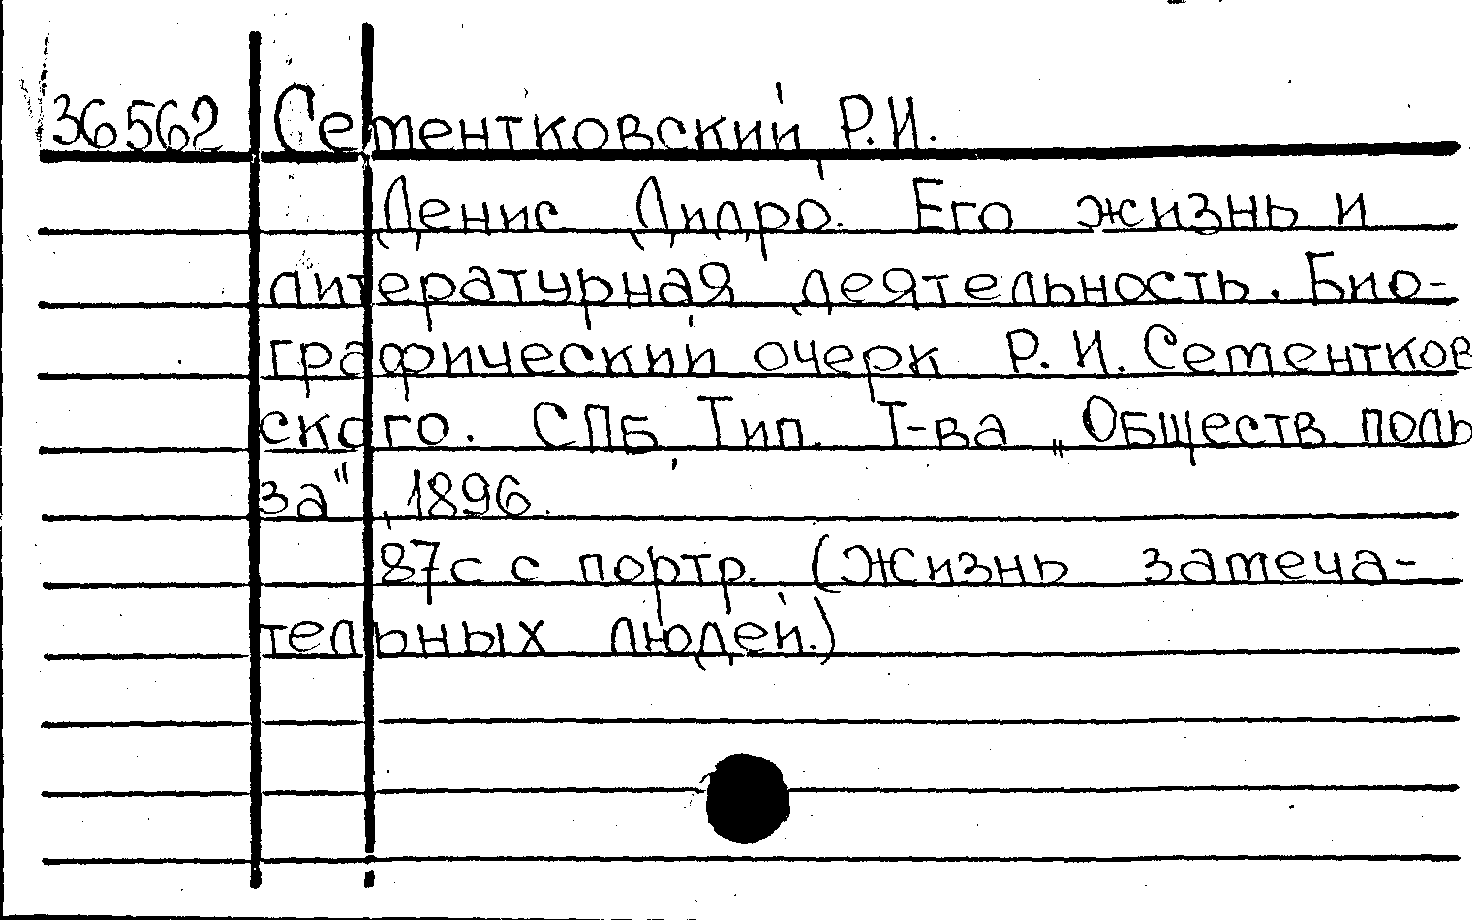 36562 Сементковский Р.И.
Денис Дидро. Его жизнь и
литературная деятельность. Био-
графический очерк Р.И. Сементков
ского. СПБ, Тип. Т-ва „Обществ поль
за", 1896.
87с с портр. (Жизнь замеча-
тельных людей.)